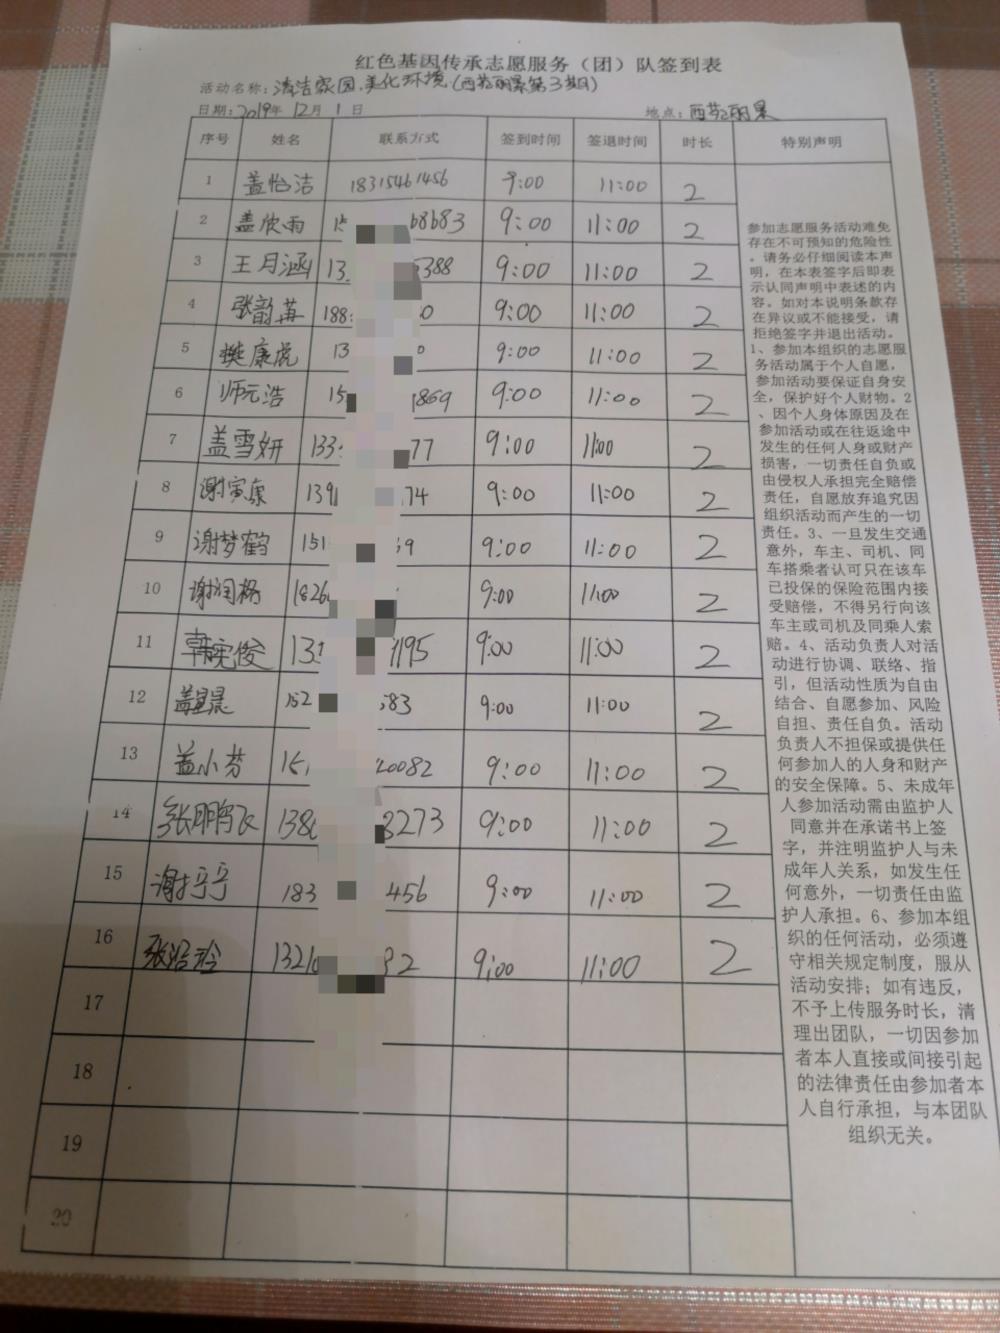 红色基因传承志愿服务（团）队签到表
活动名称：清洁家园，美化环境（西苑丽景第3期）
日期：2019年 12月 1 日 地点：西苑丽景
序号 姓名 联系方式 签到时间 签退时间 时长 特别声明
1 盖怡洁 18315461456 9:00 11:00 2
2 盖欣雨 15 68683 9:00 11:00 2
3 王月涵 13 388 9:00 11:00 2
4 张韵苒 188 0 9:00 11:00 2
5 樊康虎 13 0 9:00 11:00 2
6 师元浩 15 869 9:00 11:00 2
7 盖雪妍 133 77 9:00 11:00 2
8 谢寅康 139 74 9:00 11:00 2
9 谢梦鹤 151 39 9:00 11:00 2
10 谢润格 1826 9:00 11:00 2
11 韩宪俊 133 1195 9:00 11:00 2
12 盖 晨 152 583 9:00 11:00 2
13 盖小芬 151 20082 9:00 11:00 2
14 张鹏飞 138 3273 9:00 11:00 2
15 谢宁宁 183 456 9:00 11:00 2
16 张浩玲 1321 82 9:00 11:00 2
17
18
19
20
参加志愿服务活动难免
存在不可预知的危险性
。请务必仔细阅读本声
明，在本表签字后即表
示认同声明中表述的内
容。如对本说明条款存
在异议或不能接受，请
拒绝签字并退出活动。
1、参加本组织的志愿服
务活动属于个人自愿，
参加活动要保证自身安
全，保护好个人财物。2
、因个人身体原因及在
参加活动或在往返途中
发生的任何人身或财产
损害，一切责任自负或
由侵权人承担完全赔偿
责任，自愿放弃追究因
组织活动而产生的一切
责任。3、一旦发生交通
意外，车主、司机、同
车搭乘者认可只在该车
已投保的保险范围内接
受赔偿，不得另行向该
车主或司机及同乘人索
赔。4、活动负责人对活
动进行协调、联络、指
引，但活动性质为自由
结合、自愿参加、风险
自担、责任自负。活动
负责人不担保或提供任
何参加人的人身和财产
的安全保障。5、未成年
人参加活动需由监护人
同意并在承诺书上签
字，并注明监护人与未
成年人关系，如发生任
何意外，一切责任由监
护人承担。6、参加本组
织的任何活动，必须遵
守相关规定制度，服从
活动安排；如有违反，
不予上传服务时长，清
理出团队，一切因参加
者本人直接或间接引起
的法律责任由参加者本
人自行承担，与本团队
组织无关。